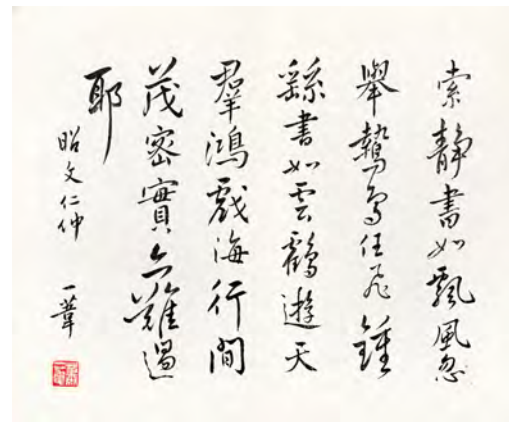 索靜書如飄風忽
舉鷙鳥任飛鍾
繇書如雲鶴遊天
羣鴻戲海行間
茂密實亦難過
耶
昭文仁仲
一葦